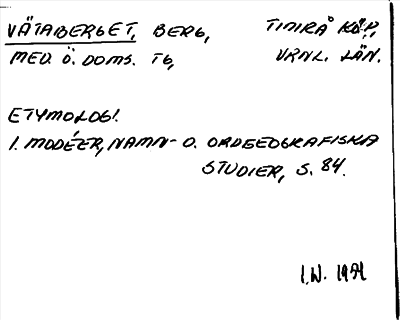 VÄTABERGET, BERG, TIMRÅ KÖP,
MED. Ö. DOMS. TG, VRNL. LÄN.
ETYMOLOGI.
I. MODÉER, NAMN- O. ORDGEOGRAFISKA
STUDIER, S. 84.
I.N. 1974